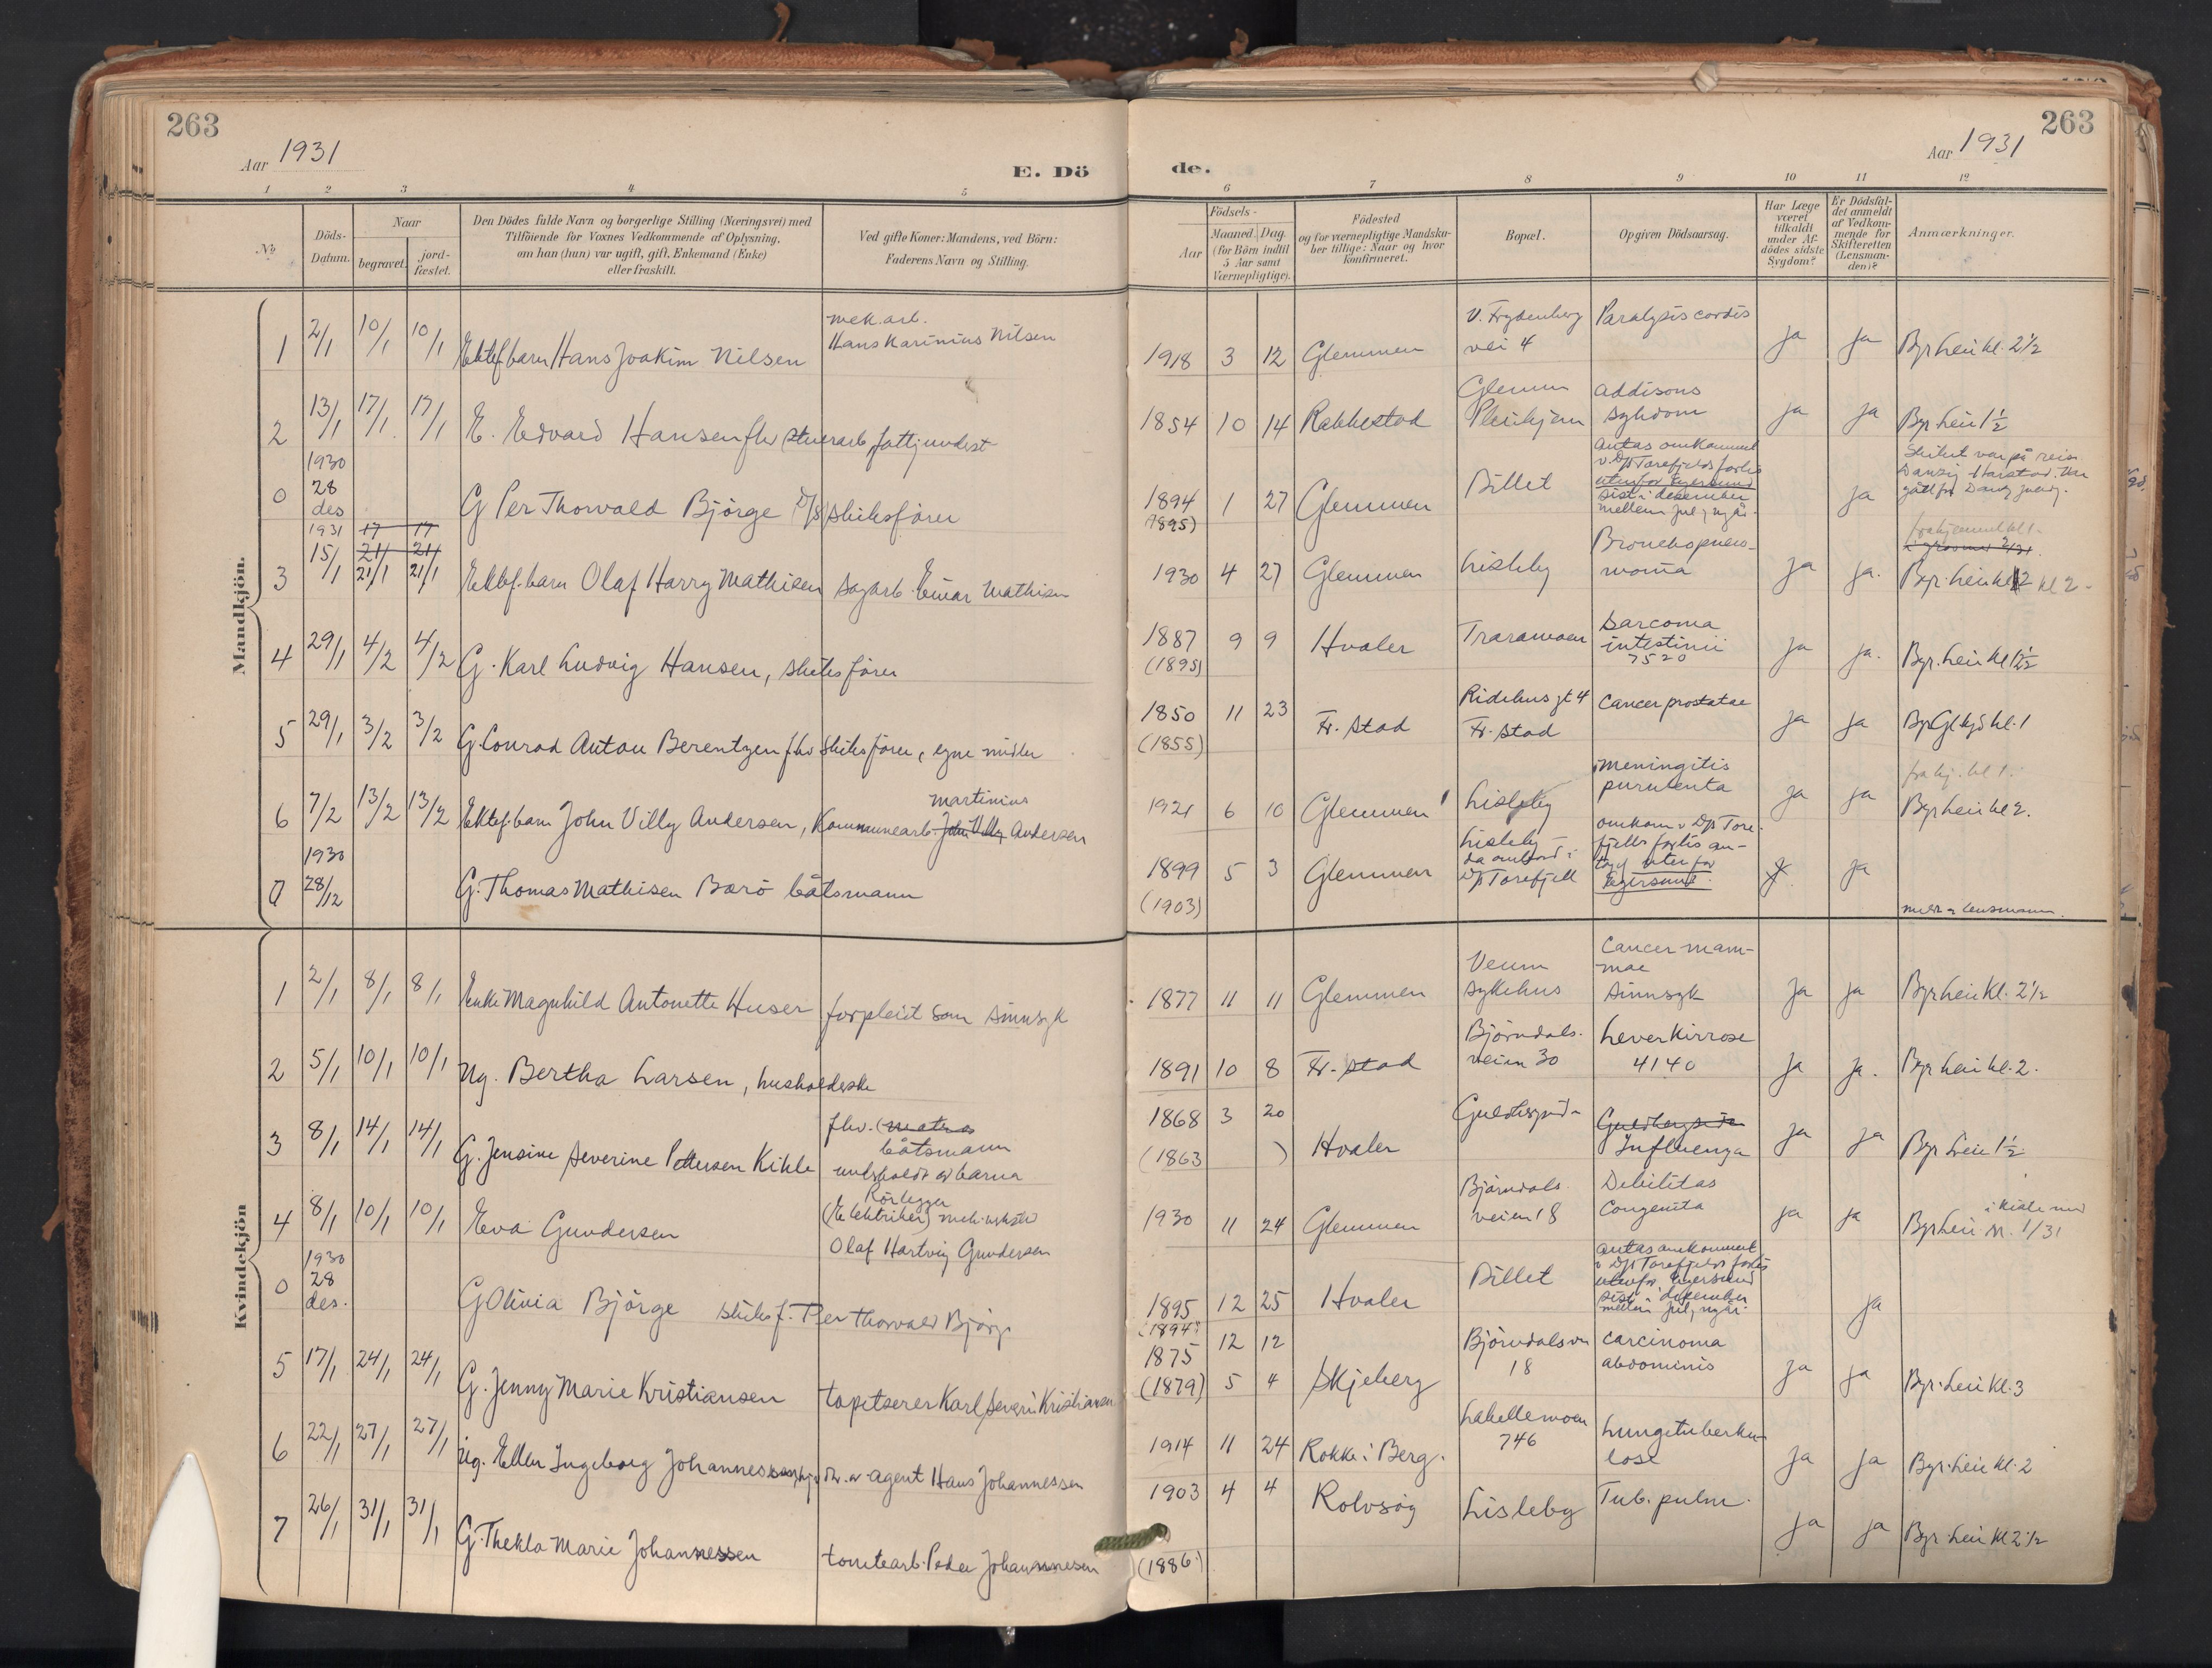 263
263
Aar 1931
E. Dö de.
Aar 1931
1 2 3 4 5 6 7 8 9 10 11 12
No.
Döds-Datum.
Naar
begravet.
jord-fæstet.
Den Dödes fulde Navn og borgerlige Stilling (Næringsvei) med
Tilföiende for Voxnes Vedkommende af Oplysning,
om han (hun) var ugift, gift, Enkemand (Enke)
eller fraskilt.
Ved gifte Koner: Mandens, ved Börn:
Faderens Navn og Stilling.
Födsels-
Aar
Maaned. Dag.
(for Börn indtil
5 Aar samt
Værnepligtige).
Födested
og for værnepligtige Mandskaber tillige: Naar og hvor
konfirmeret.
Bopæl.
Opgiven Dödsaarsag.
Har Læge
været
tilkaldt
under Afdödes sidste
Sygdom?
Er Dödsfaldet anmeldt
af Vedkommende for
Skifteretten
(Lensmanden)?
Anmærkninger.
Mandkjön.
1 2/1 10/1 10/1 Ektef. barn Hans Joakim Nilsen mek. arb. Hans Karinius Nilsen 1918 3 12 Glemmen V. Frydenberg vei 4 Paralysis cordis ja ja Byr. Leie kl. 2 1/2
2 13/1 17/1 17/1 E. Edvard Hansen fhv stuerarb fattigunderst 1854 10 14 Rakkestad Glemm Pleiehjem Addisons sykdom ja ja Byr. Leie 1 1/2
0 1930 28 des G Per Thorvald Bjørge D/S skibsfører 1894 (1895) 1 27 Glemmen Dillet antas omkommet v. D/S Torefjelds forlis utenfor Egersund sist i desember mellem jul og nyår. ja
3 1931 15/1 17 21/1 21/1 17 21/1 21/1 Ektef. barn Olaf Harry Mathisen sagarb. Einar Mathisen 1930 4 27 Glemmen Lisleby Bronchopneumonia ja ja. fra hjemmet kl 1. Byr. Leie kl 2 kl 2
4 29/1 4/2 4/2 G. Karl Ludvig Hansen, skibsfører 1887 (1895) 9 9 Hvaler Traramoen Sarcoma intestinii 7520 ja ja. Byr. Leie kl 1 1/2
5 29/1 3/2 3/2 G. Conrad Anton Berentzen fhv skibsfører, egne midler 1850 (1855) 11 23 Fr. stad Ridehusgt 4 Fr. stad Cancer prostatae ja ja Byr Gl kgd kl. 1
6 7/2 13/2 13/2 Ektef. barn John Villy Andersen, Kommunearb. John Villy Martinius Andersen 1921 6 10 Glemmen Lisleby meningitis purulenta ja ja fra hj. kl 1. Byr Leie kl 2.
0 1930 28/12 G. Thomas Mathisen Barø båtsmann 1899 (1903) 5 3 Glemmen Lisleby da ombord i D/S Torefjell omkom v D/S Torefjells forlis antagl utenfor Egersund. ja
Kvindekjön
1 2/1 8/1 8/1 Enke Magnhild Antonette Huser forpleiet som sinnsyk 1877 11 11 Glemmen Veum sykehus Cancer mammae sinnsyk ja ja Byr Leie Kl. 2 1/2
2 5/1 10/1 10/1 Ug. Bertha Larsen, husholderske 1891 10 8 Fr. stad Bjørndalsveien 30 Leverkirrose 4140 ja ja. Byr Leie kl. 2.
3 8/1 14/1 14/1 G. Jensine Severine Pettersen Kihle fhv. (matros båtsmann underholdt av barna 1868 (1863) 3 20 Hvaler Influenza ja ja Byr Leie 1 1/2
4 8/1 10/1 10/1 Eva Gundersen Rørlegger (Elektriker) Olaf Hartvig Gundersen 1930 11 24 Glemmen Bjørndals veien 18 Debilitas Congenita ja ja Byr Leie i kiste med nr. 1/31
0 1930 28 des. G Olivia Bjørge skibsf. Per Thorvald Bjørge 1895 (1894) 12 25 Hvaler Dillet antas omkommet v D/S Torefjelds forlis utenfor Egersund sist i desember mellem jul, nyår. ja
5 17/1 24/1 24/1 G. Jenny Marie Kristiansen tapetserer Karl Severin Kristiansen 1875 (1879) 12 12 5 4 Skjeberg Bjørndalsvn 18 Carcinoma abdominis ja ja Byr. Leie Kl. 3
6 22/1 27/1 27/1 Ug. Ellen Ingeborg Johannessen, hj. dtr. av agent Hans Johannessen 1914 11 24 Rokke i Berg. Lahellemoen 746 Lungetuberkulose ja ja Byr. Leie Kl. 2
7 26/1 31/1 31/1 G. Thekla Marie Johannessen tomtearb. Peder Johannessen 1903 (1886) 4 4 Rolvsøy Lisleby Tub. pulm. ja ja Byr. Leie Kl 2 1/2